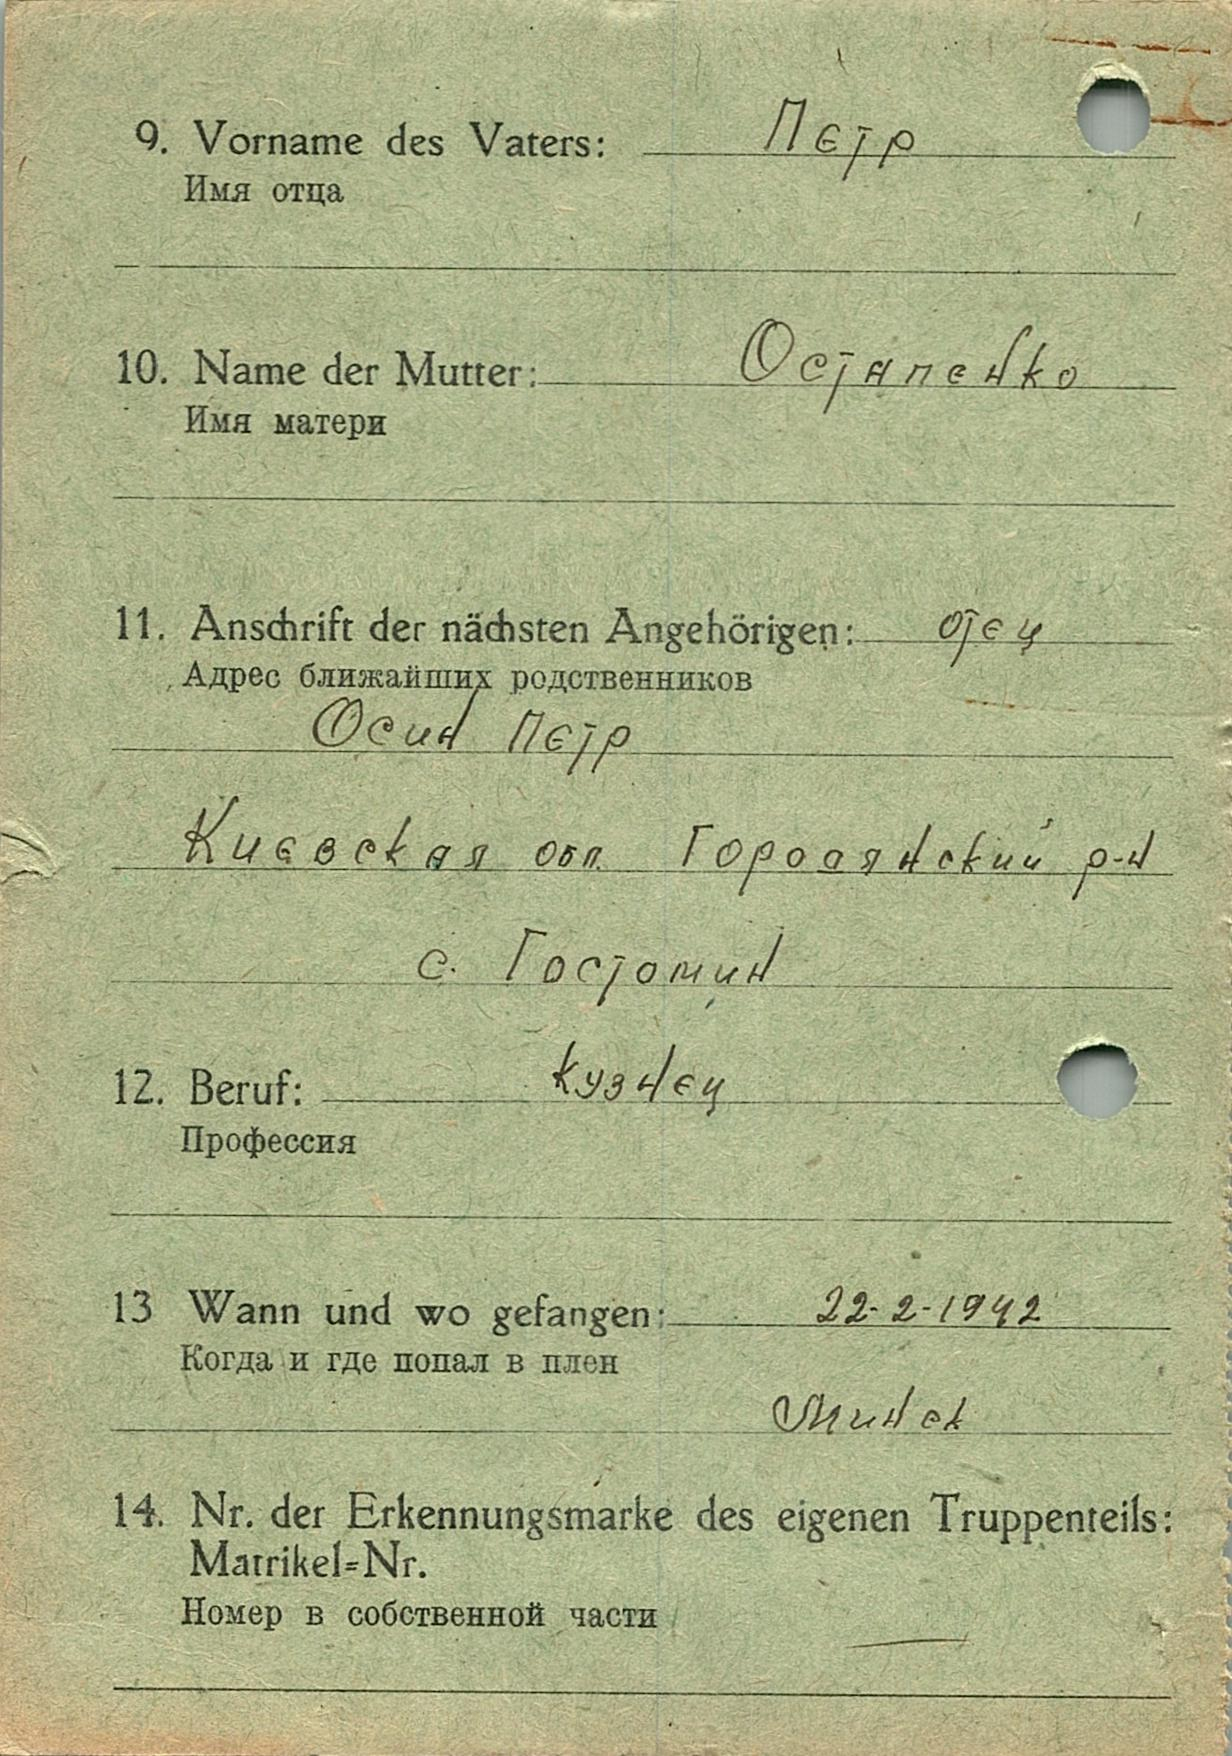 9. Vorname des Vaters: Пєтр
Имя отца
10. Name der Mutter: Остапенко
Имя матери
11. Anschrift der nächsten Angehörigen: отец
Адрес ближайших родственников
Осин Пєтр
Киевская обл. Городянский р-н
с. Гостомин
12. Beruf: кузнец
Профессия
13 Wann und wo gefangen: 22-2-1942
Когда и где попал в плен
Минск
14. Nr. der Erkennungsmarke des eigenen Truppenteils:
Matrikel=Nr.
Номер в собственной части
—